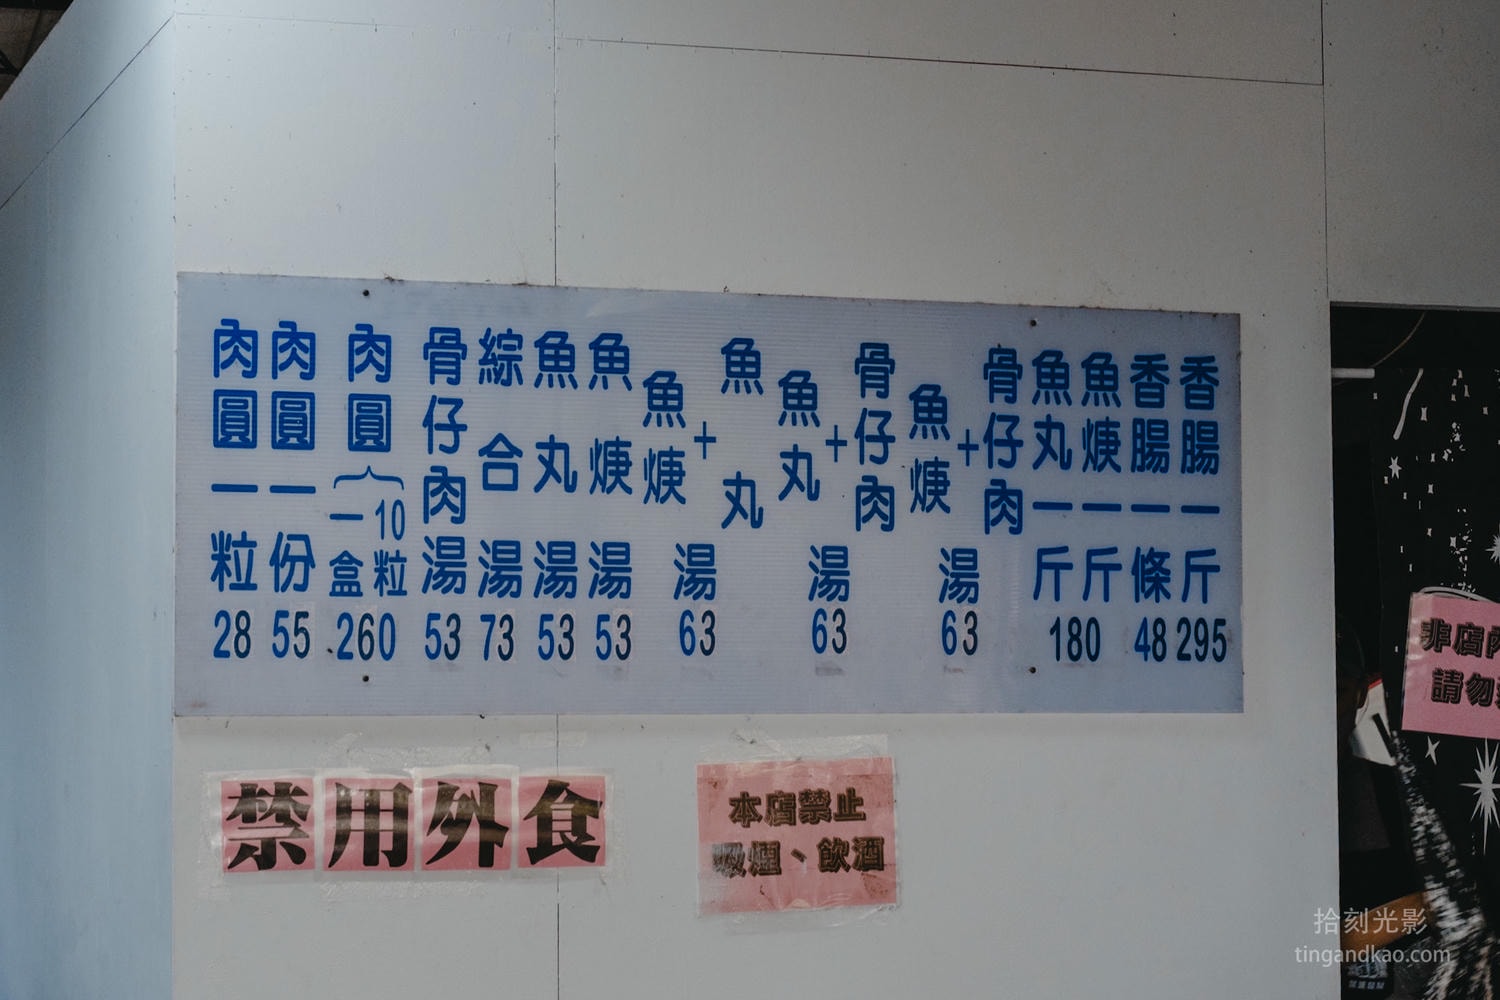 肉圓一粒 28
肉圓一份 55
肉圓一盒10粒 260
骨仔肉湯 53
綜合湯 73
魚丸湯 53
魚焿湯 53
魚焿+魚丸湯 63
魚丸+骨仔肉湯 63
魚焿+骨仔肉湯 63
魚丸一斤
魚焿一斤
180
香腸一條 48
香腸一斤 295
禁用外食
本店禁止
吸煙、飲酒
非店內
請勿
拾刻光影
tingandkao.com